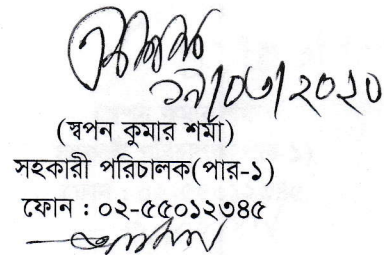 ১৯/০৩/২০২০
(স্বপন কুমার শর্মা)
সহকারী পরিচালক(পার-১)
ফোন : ০২-৫৫০১২৩৪৫